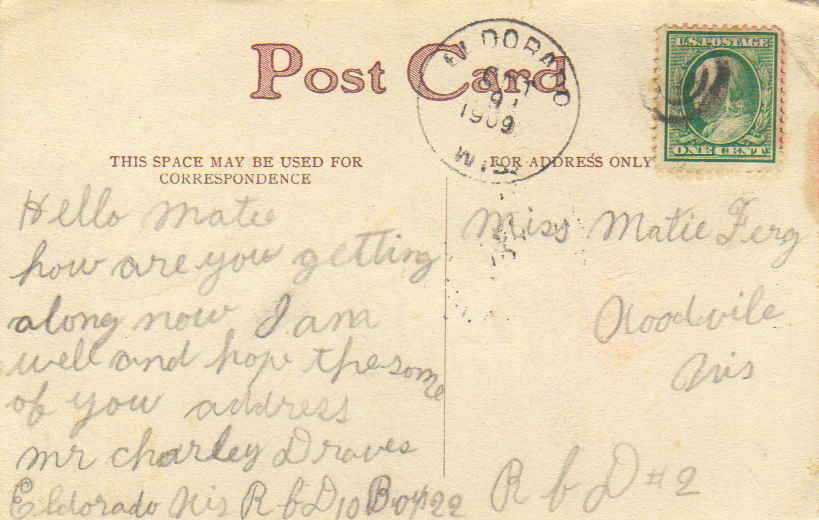 Post Card
ELDORADO
OCT
9
1909
WIS.
U.S. POSTAGE
ONE CENT
THIS SPACE MAY BE USED FOR
CORRESPONDENCE
FOR ADDRESS ONLY
Hello Matie
how are you getting
along now I am
well and hope the some
of you address
mr charley Draves
Eldorado Wis R b D 10 Box 22
Miss Matie Ferg
Woodvile
Wis
R b D # 2